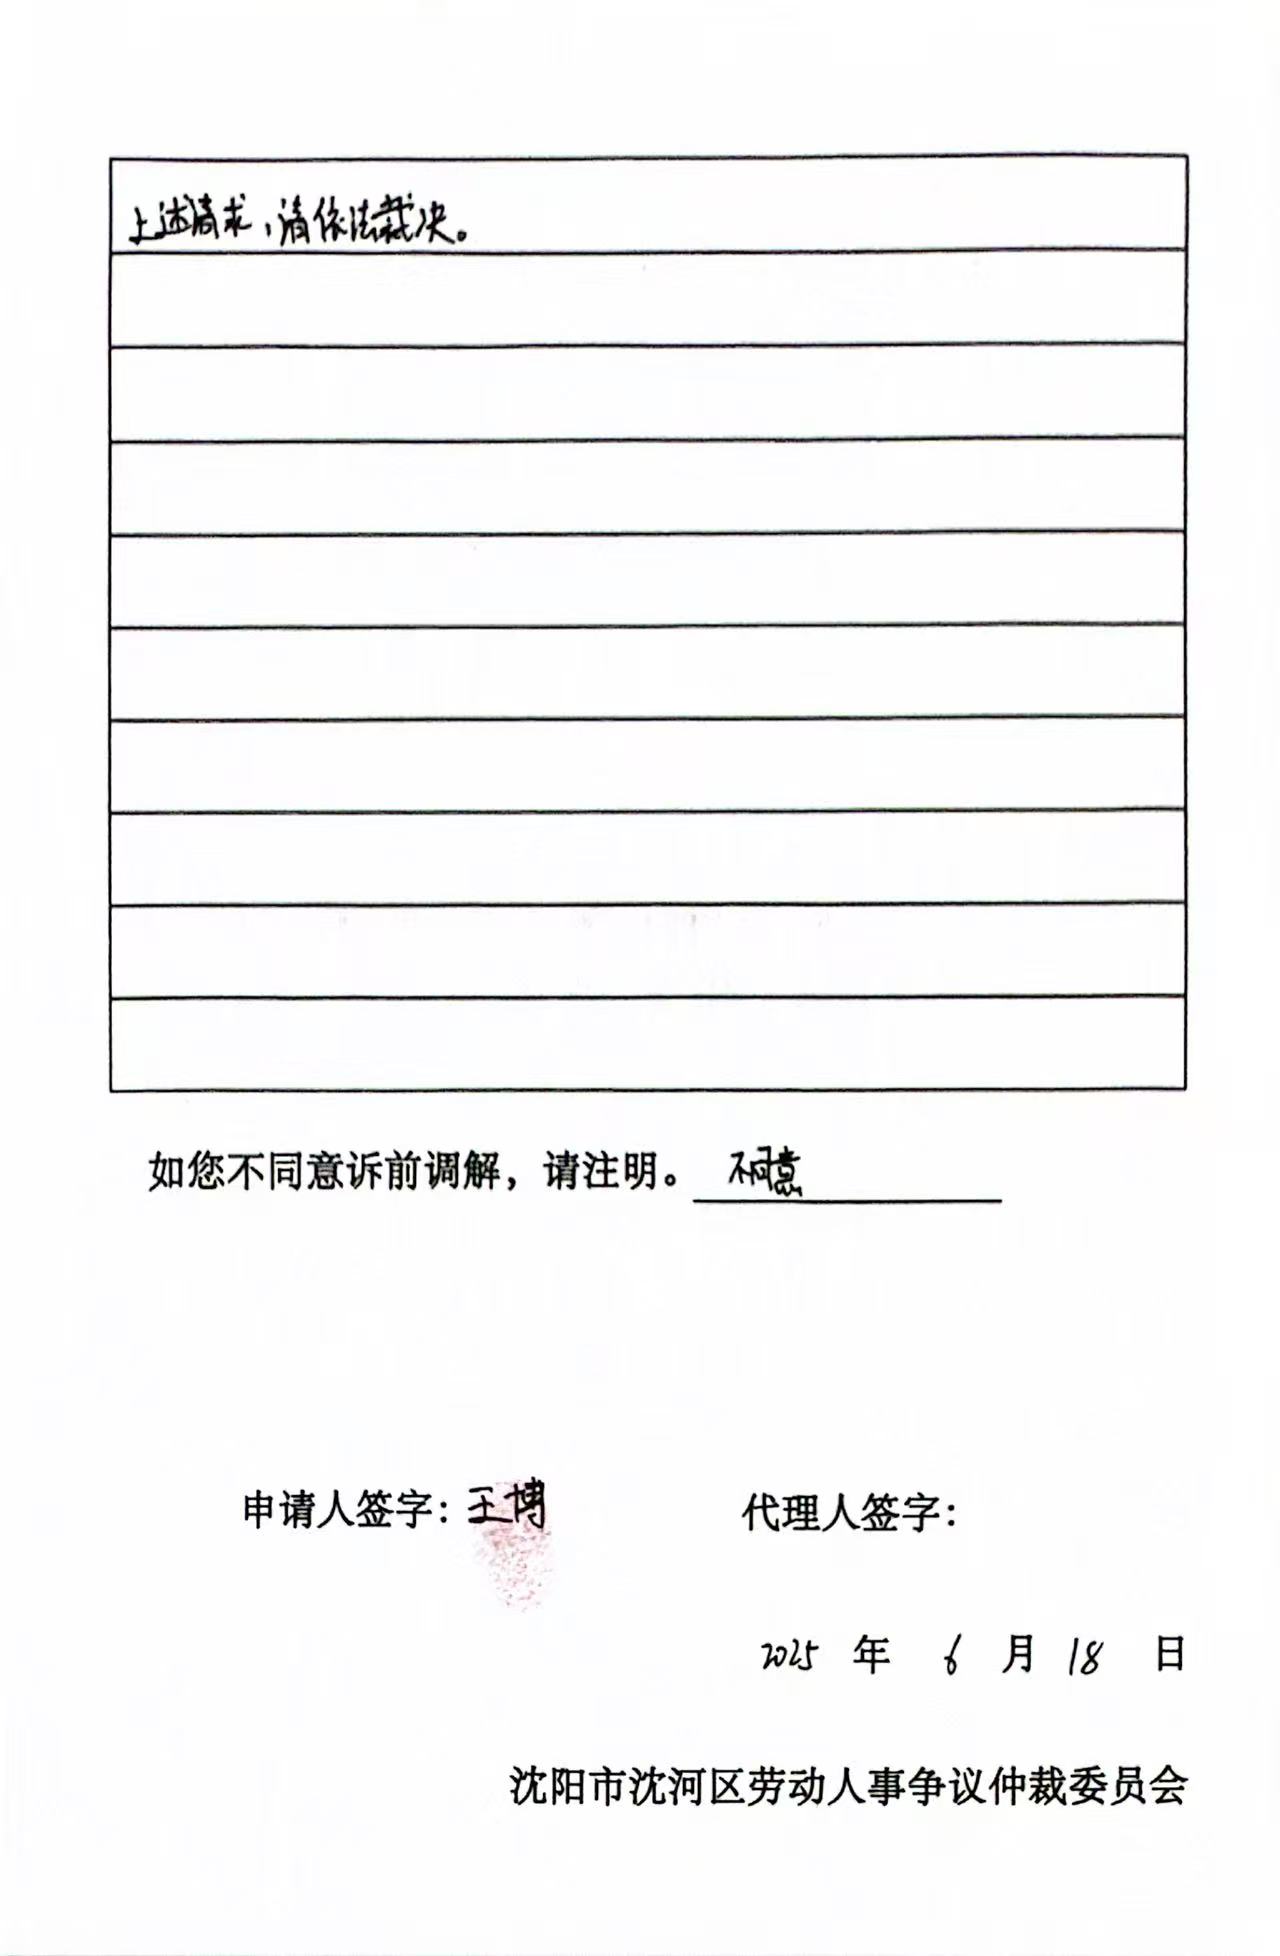 上述请求，请依法裁决。
如您不同意诉前调解，请注明。 不同意
申请人签字：王博 代理人签字：
2025 年 6 月 18 日
沈阳市沈河区劳动人事争议仲裁委员会